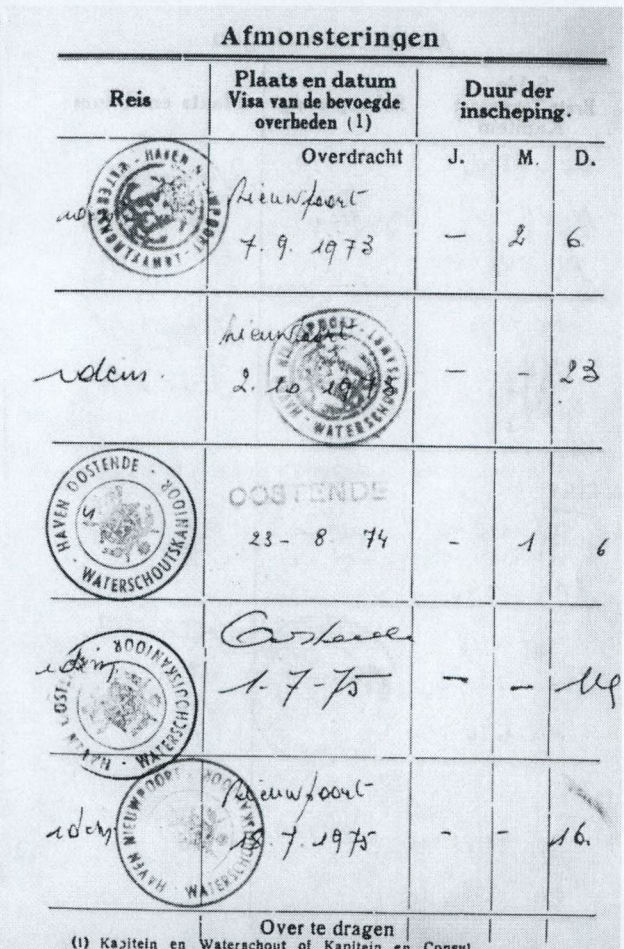 Afmonsteringen
Reis
Plaats en datum
Visa van de bevoegde
overheden (1)
Duur der
inscheping.
Overdracht J. M. D.
idem
HAVEN NIEUWPOORT - WATERSCHOUTSKANTOOR
Nieuwpoort
7. 9. 1973 - 2 6
idem.
Nieuwpoort
2. 10 1973 - - 23
HAVEN NIEUWPOORT
WATERSCHOUTSKANTOOR
HAVEN OOSTENDE - WATERSCHOUTSKANTOOR
OOSTENDE
23 - 8 74 - 1 6
idem
HAVEN OOSTENDE - WATERSCHOUTSKANTOOR
Oostende
1-7-75 - - 14
idem
HAVEN NIEUWPOORT - WATERSCHOUTSKANTOOR
Nieuwpoort
18.7.1975 - - 16.
Over te dragen
(1) Kapitein en Waterschout of Kapitein en Consul